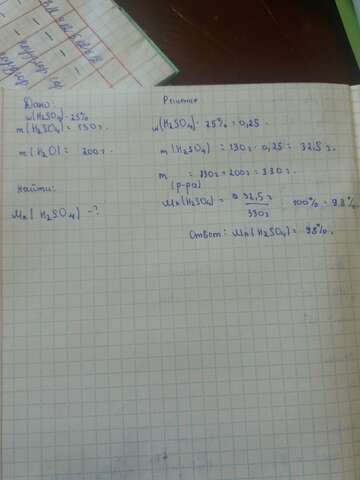 Дано:
w(H₂SO₄) = 25%
m(H₂SO₄) = 130г
m(H₂O) = 200г.
Найти:
(H₂SO₄) - ?
Решение
w(H₂SO₄) = 25% = 0,25.
m(H₂SO₄) = 130г · 0,25 = 32,5г.
m = 130г + 200г = 330г.
(р-ра)
(H₂SO₄) = 32,5г
330г
· 100% = 9,8%.
Ответ: (H₂SO₄) = 9,8%.